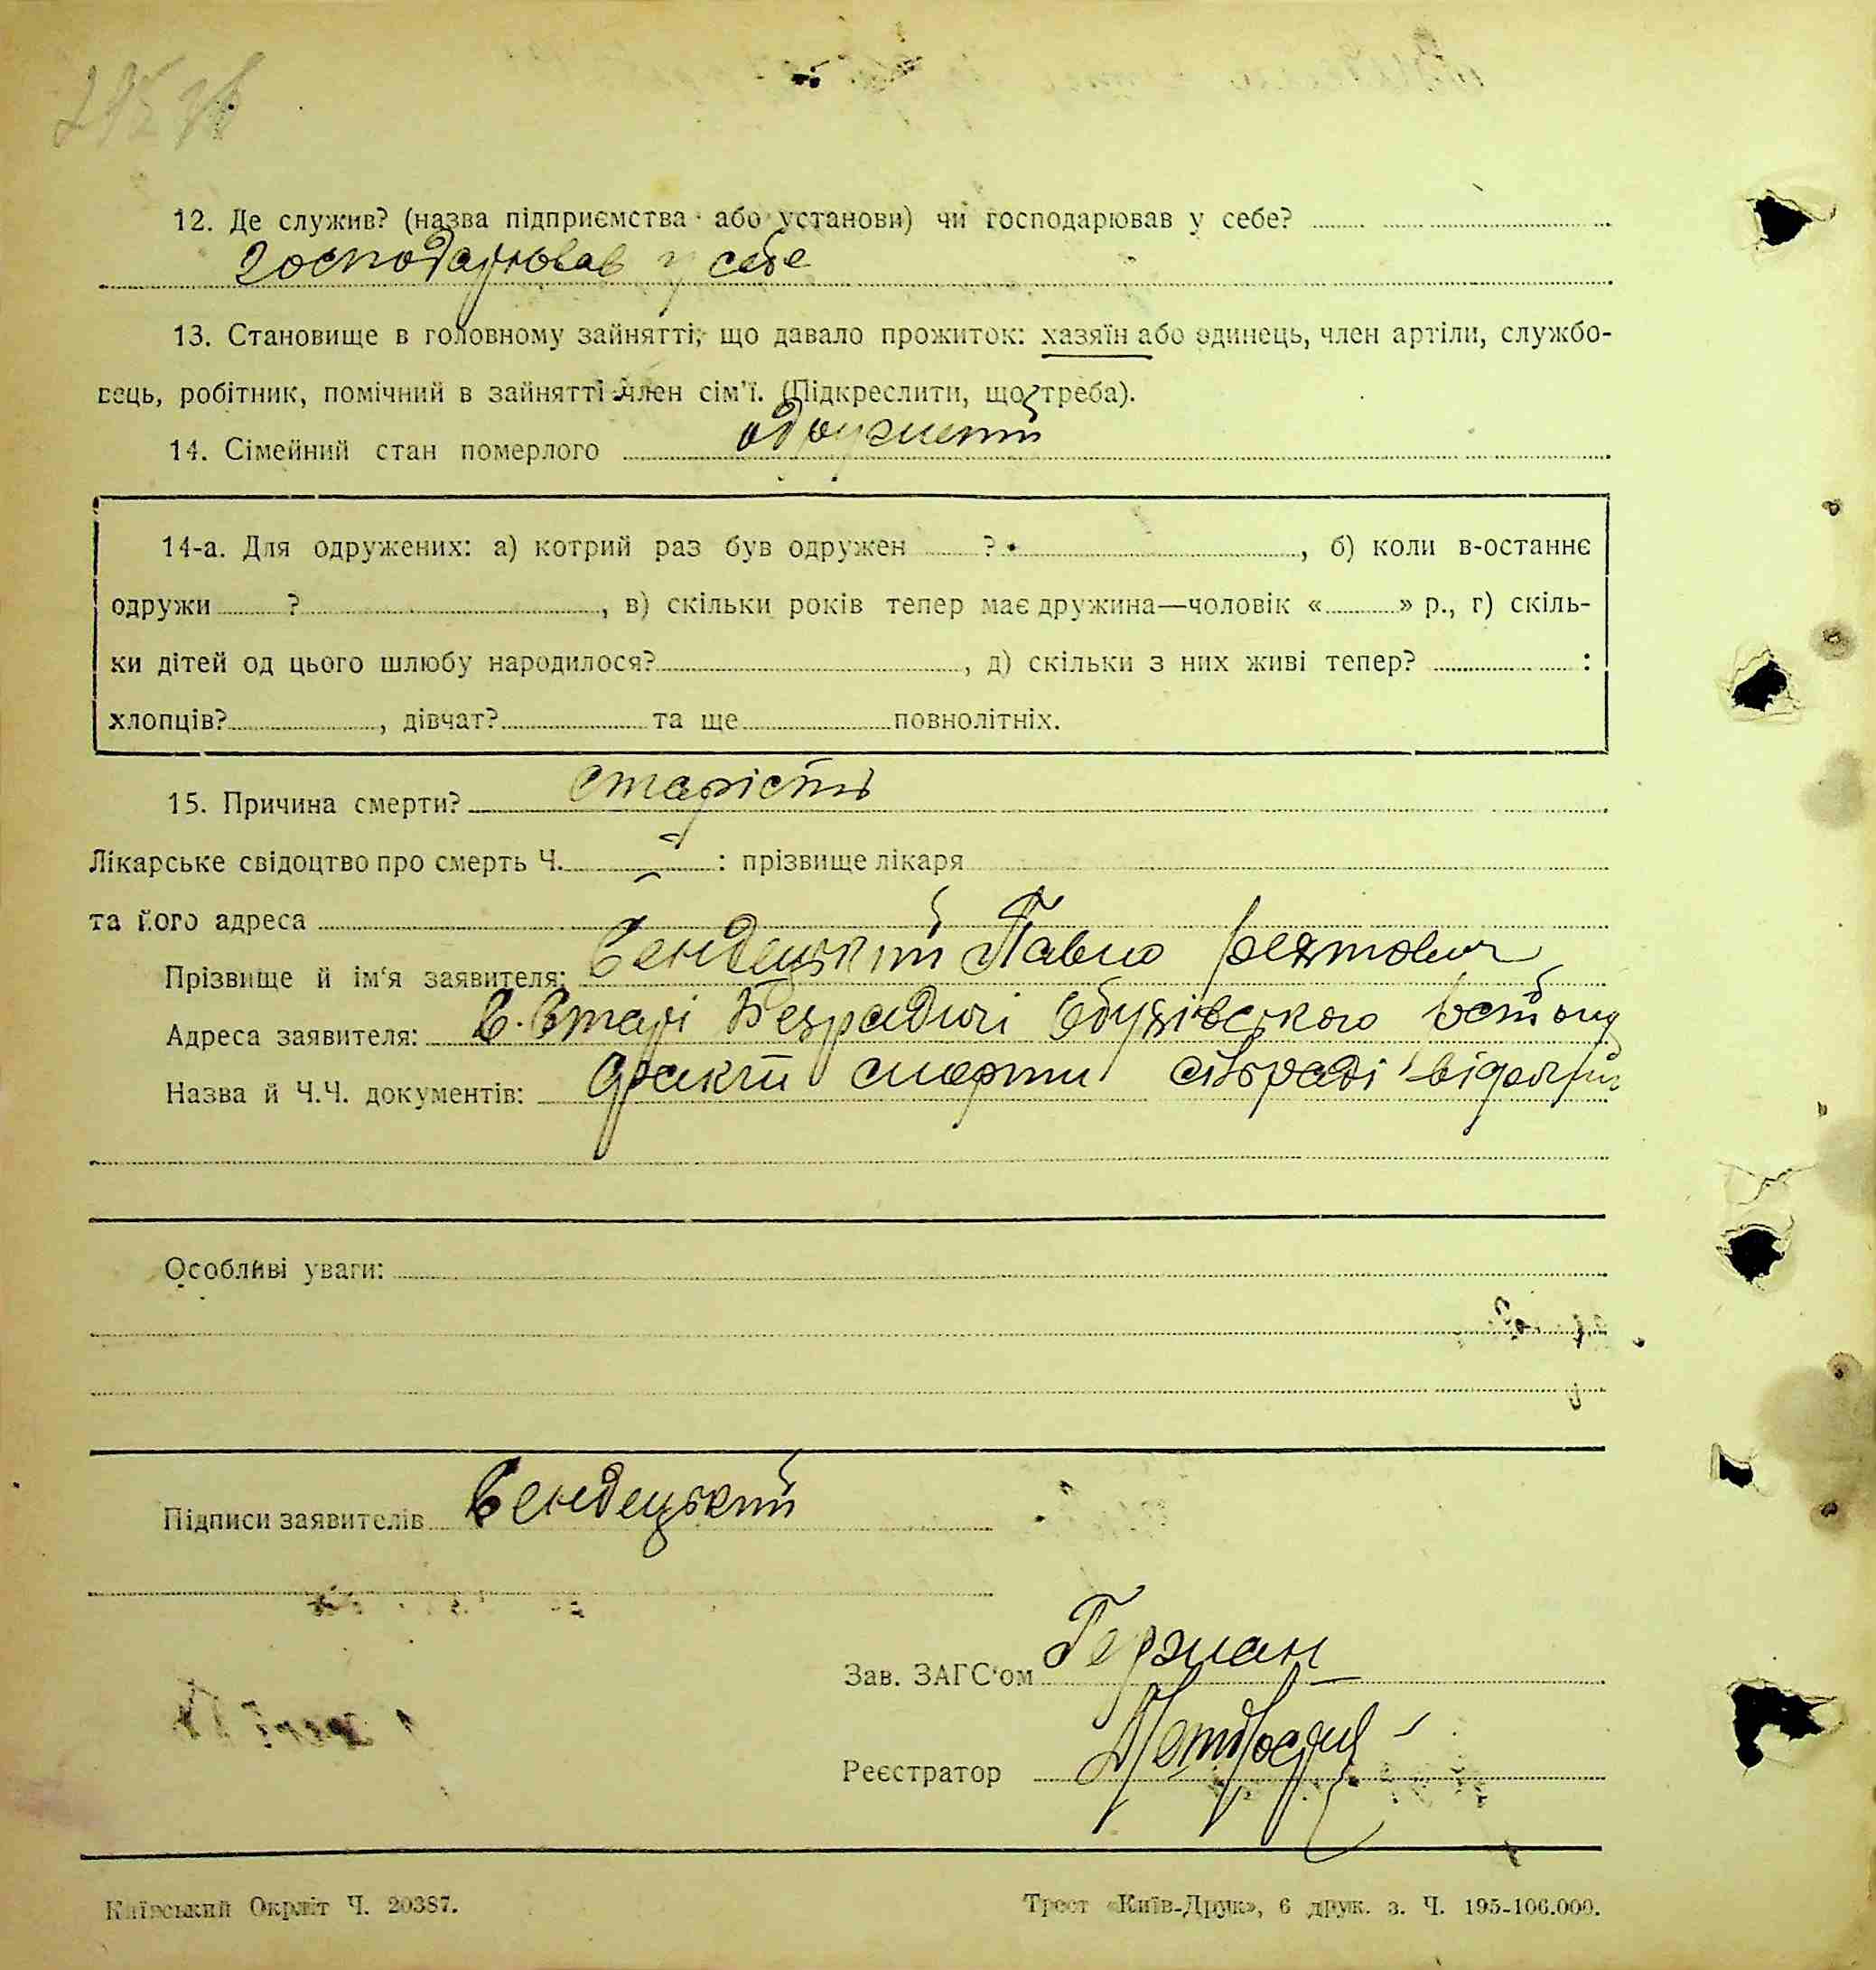 12. Де служив? (назва підприємства або установи) чи господарював у себе?
господарював у себе
13. Становище в головному зайнятті, що давало прожиток: хазяїн або одинець, член артіли, службо-
вець, робітник, помічний в зайнятті член сім'ї. (Підкреслити, що треба).
14. Сімейний стан померлого одружений
14-а. Для одружених: а) котрий раз був одружен ?, б) коли в-останнє
одружи ?, в) скільки років тепер має дружина—чоловік « » р., г) скіль-
ки дітей од цього шлюбу народилося?, д) скільки з них живі тепер? :
хлопців?, дівчат? та ще повнолітніх.
15. Причина смерти? старість
Лікарське свідоцтво про смерть Ч. : прізвище лікаря
та його адреса
Прізвище й ім'я заявителя: Сендецький Павло
Адреса заявителя: с. Старі Безрадичі Обухівського
Назва й Ч.Ч. документів: факт смерти сільраді відомий
Особливі уваги:
Підписи заявителів Сендецький
Зав. ЗАГС'ом Герман
Реєстратор
Київський Окрліт Ч. 20387.
Трест «Київ-Друк», 6 друк. з. Ч. 195-106.000.